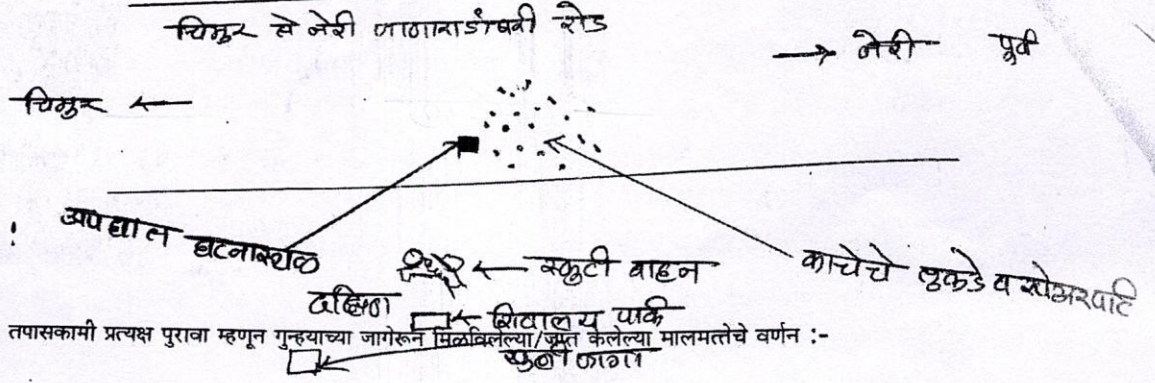 चिमुर ते नेरी जाणारा डांबरी रोड
→ नेरी पूर्व
चिमुर ←
अपघात घटनास्थळ
स्कुटी वाहन
काचेचे तुकडे व स्पेअरपार्ट
दक्षिण
शिवालय पार्क
तपासकामी प्रत्यक्ष पुरावा म्हणून गुन्हयाच्या जागेरून मिळविलेल्या/जप्त केलेल्या मालमत्तेचे वर्णन :-
खुली जागा